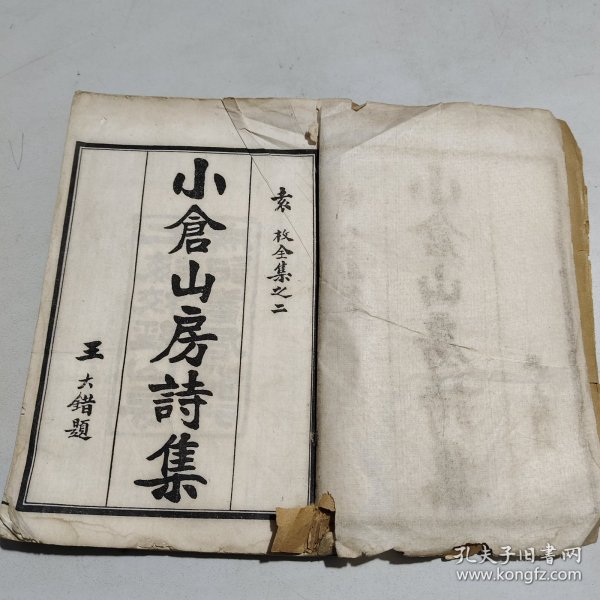 袁枚全集之二
小倉山房詩集
王大錯題
孔夫子旧書网
www.kongfz.com